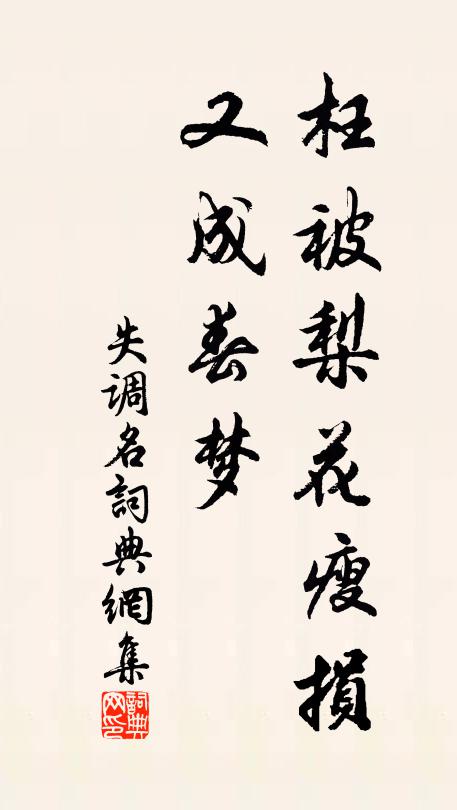 枉被梨花瘦損
又成春梦
失调名詞典網集
詞典网印